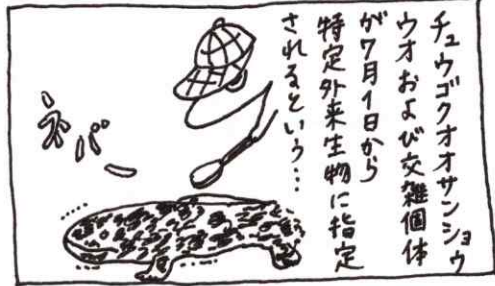 チュウゴクオオサンショウ
ウオおよび交雑個体
が7月1日から
特定外来生物に指定
されるという…
ネバー